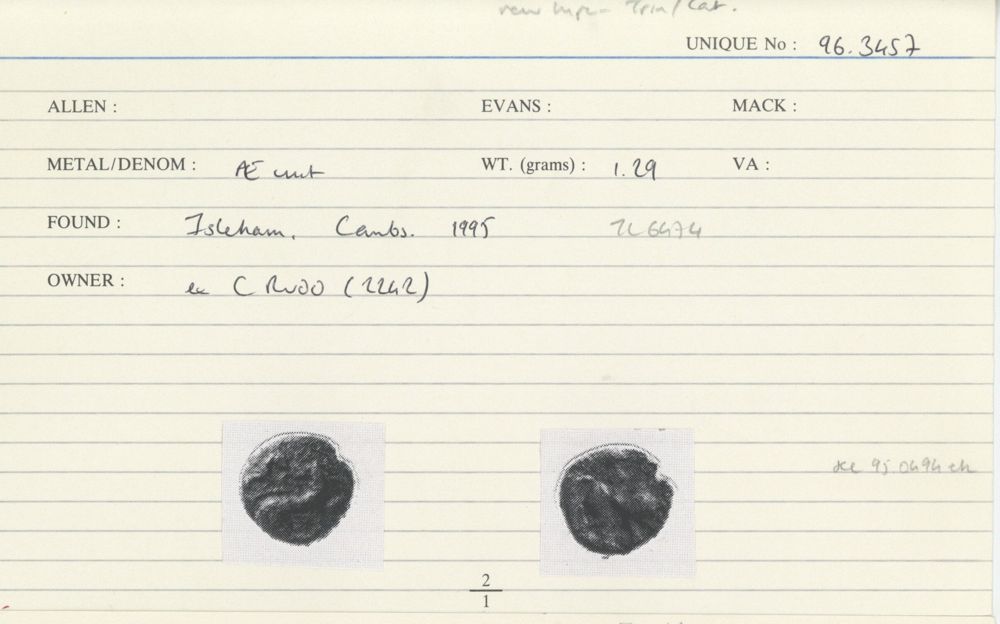 Trin/Cat.
UNIQUE No : 96.3457
ALLEN : EVANS : MACK :
METAL/DENOM : Æ unit WT. (grams) : 1.29 VA :
FOUND : Isleham, Cambs. 1995 TL 6474
OWNER : ex C RUDD (2242)
95.0494
2
1